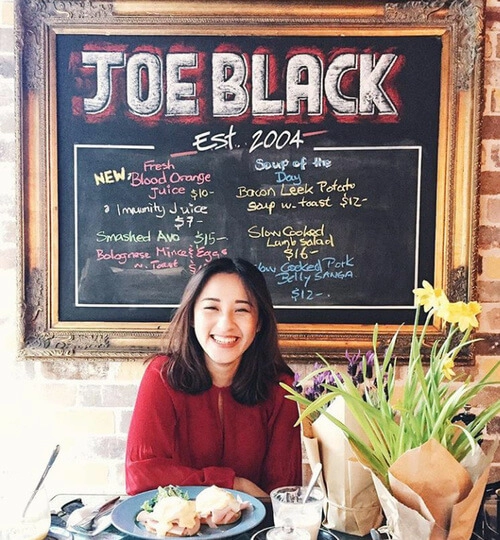 JOE BLACK
EST. 2004
NEW Fresh
Blood Orange
Juice $10-
Immunity Juice
$7-
Smashed Avo $15-
Bolognase Mince & Eggs
w. Toast
Soup of the
Day
Bacon Leek Potato
Soup w- toast $12-
Slow Cooked
Lamb Salad
$16-
Slow Cooked Pork
Belly SANGA
$12-